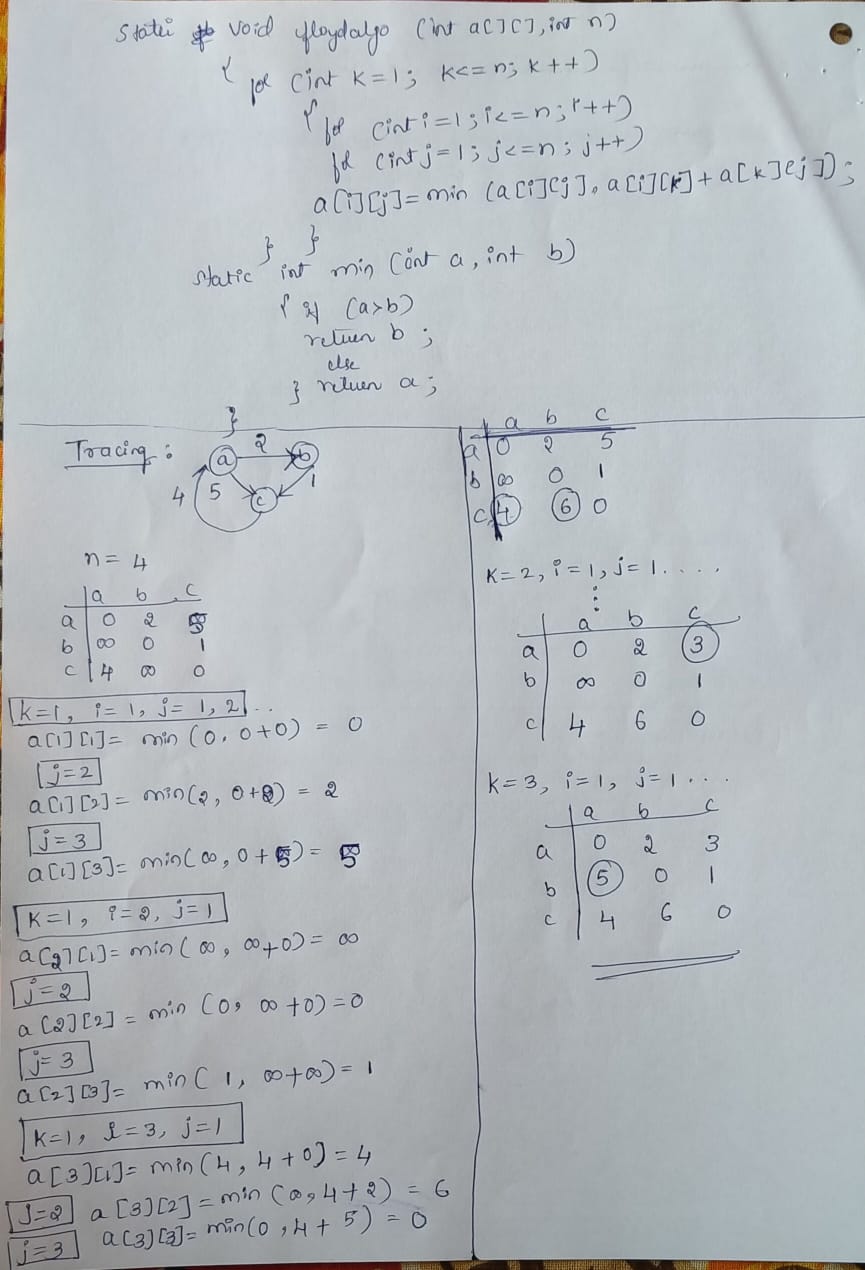 static void floydalgo (int a[][], int n)
{ for (int k=1; k<=n; k++)
{ for (int i=1; i<=n; i++)
for (int j=1; j<=n; j++)
a[i][j]= min (a[i][j], a[i][k]+a[k][j]);
} }
static int min (int a, int b)
{ if (a>b)
return b;
else
} return a;
}
Tracing:
a 2 b
4 5 c 1
n= 4
a b c
a 0 2 5
b ∞ 0 1
c 4 ∞ 0
k=1, i=1, j=1,2...
a[1][1]= min (0, 0+0) = 0
j=2
a[1][2]= min(2, 0+2) = 2
j=3
a[1][3]= min(∞, 0+5)= 5
K=1, i=2, j=1
a[2][1]= min(∞, ∞+0)= ∞
j=2
a[2][2]= min (0, ∞+0)=0
j=3
a[2][3]= min( 1, ∞+∞)= 1
K=1, i=3, j=1
a[3][1]= min(4, 4+0)=4
j=2 a[3][2]=min(∞,4+2) = 6
j=3 a[3][3]= min(0,4+5) = 0
a b c
a 0 2 5
b ∞ 0 1
c 4 6 0
K=2, i=1, j=1....
a b c
a 0 2 3
b ∞ 0 1
c 4 6 0
K=3, i=1, j=1...
a b c
a 0 2 3
b 5 0 1
c 4 6 0